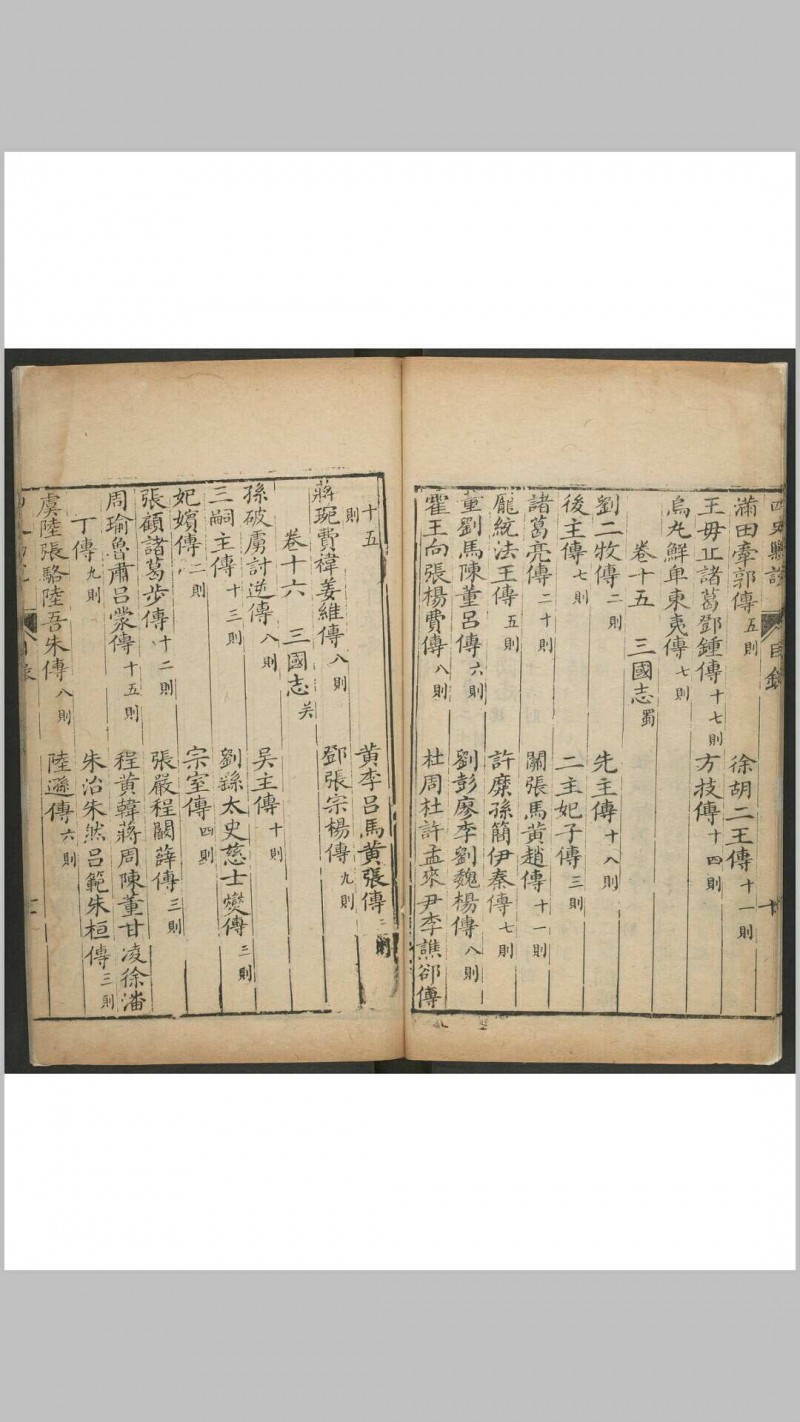 四史勦說
目錄
十
滿田牽郭傳五則 徐胡二王傳十一則
王毋丘諸葛鄧鍾傳十七則 方技傳十四則
烏丸鮮卑東夷傳七則
卷十五 三國志蜀
劉二牧傳二則 先主傳十八則
後主傳七則 二主妃子傳三則
諸葛亮傳二十則 關張馬黃趙傳十一則
龐統法正傳五則 許糜孫簡伊秦傳七則
董劉馬陳董呂傳六則 劉彭廖李劉魏楊傳八則
霍王向張楊費傳八則 杜周杜許孟來尹李譙郤傳
十五則 黃李呂馬黃張傳二則
蔣琬費禕姜維傳八則 鄧張宗楊傳九則
卷十六 三國志吴
孫破虜討逆傳八則 吳主傳十則
三嗣主傳十三則 劉繇太史慈士燮傳三則
妃嬪傳二則 宗室傳四則
張顧諸葛步傳十二則 張嚴程闞薛傳三則
周瑜魯肅呂蒙傳十五則 程黃韓蔣周陳董甘凌徐潘
丁傳九則 朱治朱然呂範朱桓傳三則
虞陸張駱陸吾朱傳八則 陸遜傳六則